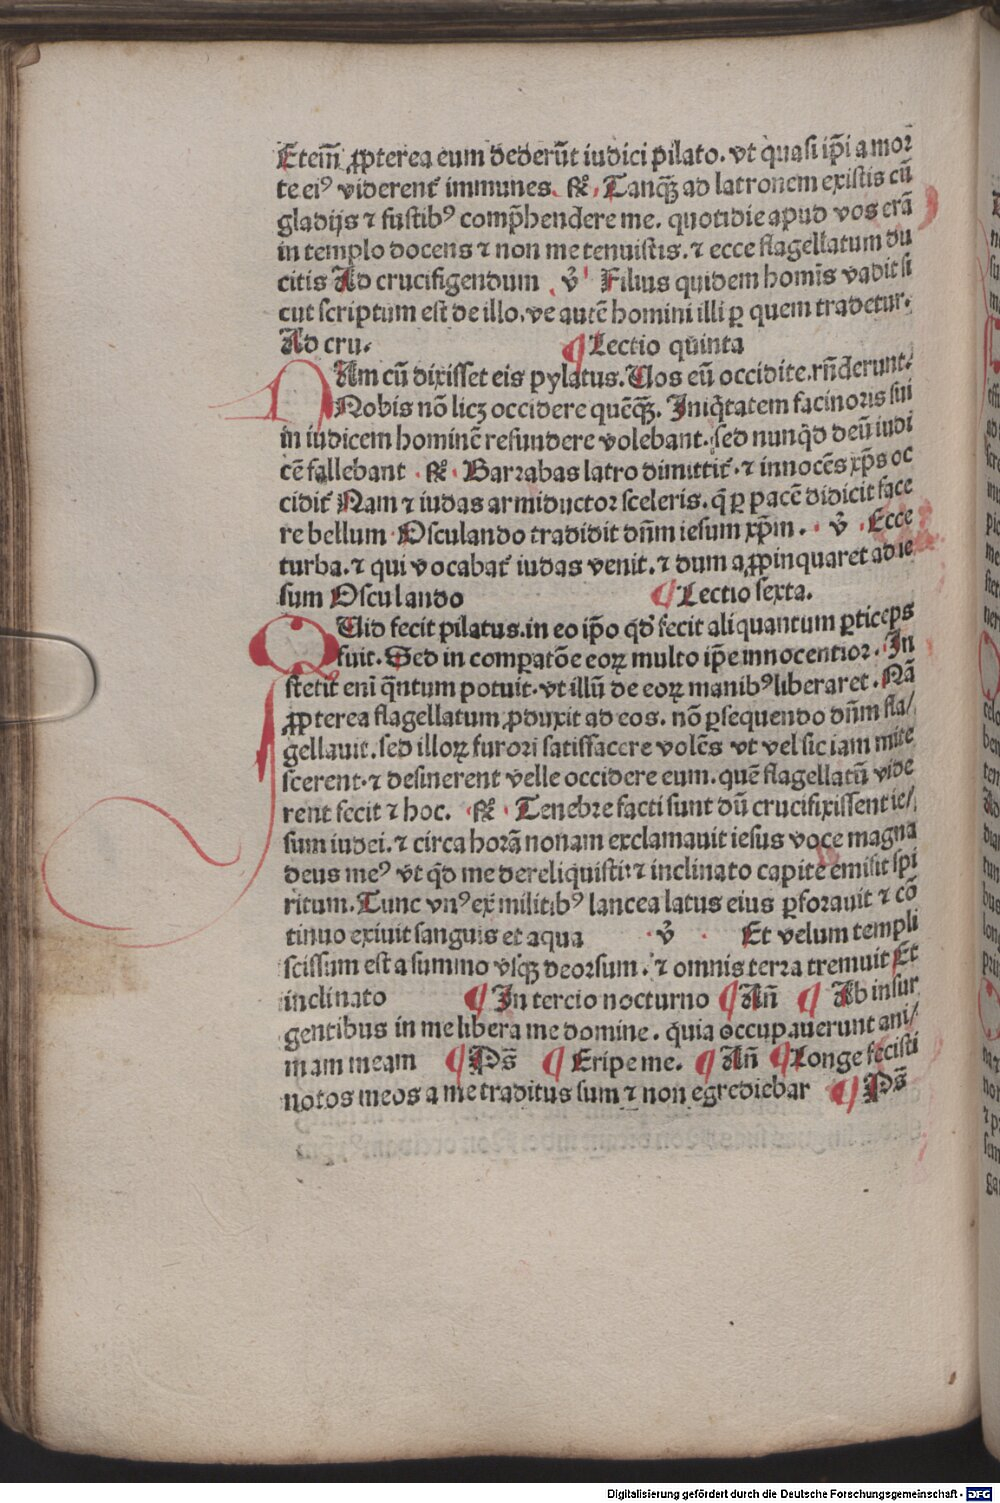 Etem̄ ꝓpterea eum dederūt iudici pilato. vt quasi ip̄i a mor
te eiꝰ viderent̄ immunes. ℟. Tanqȝ ad latronem existis cū
gladijs ⁊ fustibꝰ comp̄hendere me. quotidie apud vos erā
in templo docens ⁊ non me tenuistis. ⁊ ecce flagellatum du
citis Ad crucifigendum . v̄ Filius quidem homīs vadit si
cut scriptum est de illo. ve autē homini illi ꝑ quem tradetur.
Ad cru. ¶ Lectio quinta
NAm cū dixisset eis pylatus. Uos eū occidite. rn̄derunt.
Nobis nō licȝ occidere quēqȝ. Iniq̄tatem facinoris sui
in iudicem hominē refundere volebant. sed nunqd̄ deū iudi
cē fallebant . ℟. Barrabas latro dimittit̄. ⁊ innocēs xp̄s oc
cidit̄ Nam ⁊ iudas armiductor sceleris. q̄ ꝑ pacē didicit face
re bellum Osculando tradidit dn̄m iesum xp̄m . . v̄ . Ecce
turba. ⁊ qui vocabat̄ iudas venit. ⁊ dum aꝓpinquaret ad ie
sum Osculando ¶ Lectio sexta.
QUid fecit pilatus. in eo ip̄o qd̄ fecit aliquantum ꝑticeps
fuit. Sed in comꝑatōe eoꝝ multo ip̄e innocentior. In
stetit eni q̄ntum potuit. vt illū de eoꝝ manibꝰ liberaret. Nā
ꝓpterea flagellatum ꝓduxit ad eos. nō ꝑsequendo dn̄m fla/
gellauit. sed illoꝝ furori satisfacere volēs vt vel sic iam mite
scerent. ⁊ desinerent velle occidere eum. quē flagellatū vide
rent fecit ⁊ hoc. ℟. Tenebre facti sunt dū crucifixissent ie/
sum iudei. ⁊ circa horā nonam exclamauit iesus voce magna
deus meꝰ vt qd̄ me dereliquisti: ⁊ inclinato capite emisit spi
ritum. Tunc vnꝰ ex militibꝰ lancea latus eius ꝑforauit ⁊ cō
tinuo exiuit sanguis et aqua . v̄ . Et velum templi
scissum est a summo vsqȝ deorsum. ⁊ omnis terra tremuit Et
inclinato ¶ In tercio nocturno ¶ An̄ ¶ Ab insur
gentibus in me libera me domine. q̄uia occupauerunt ani/
mam meam ¶ Ps̄ ¶ Eripe me. ¶ An̄ ¶ Longe fecisti
notos meos a me traditus sum ⁊ non egrediebar ¶ Ps̄
Digitalisierung gefördert durch die Deutsche Forschungsgemeinschaft - DFG